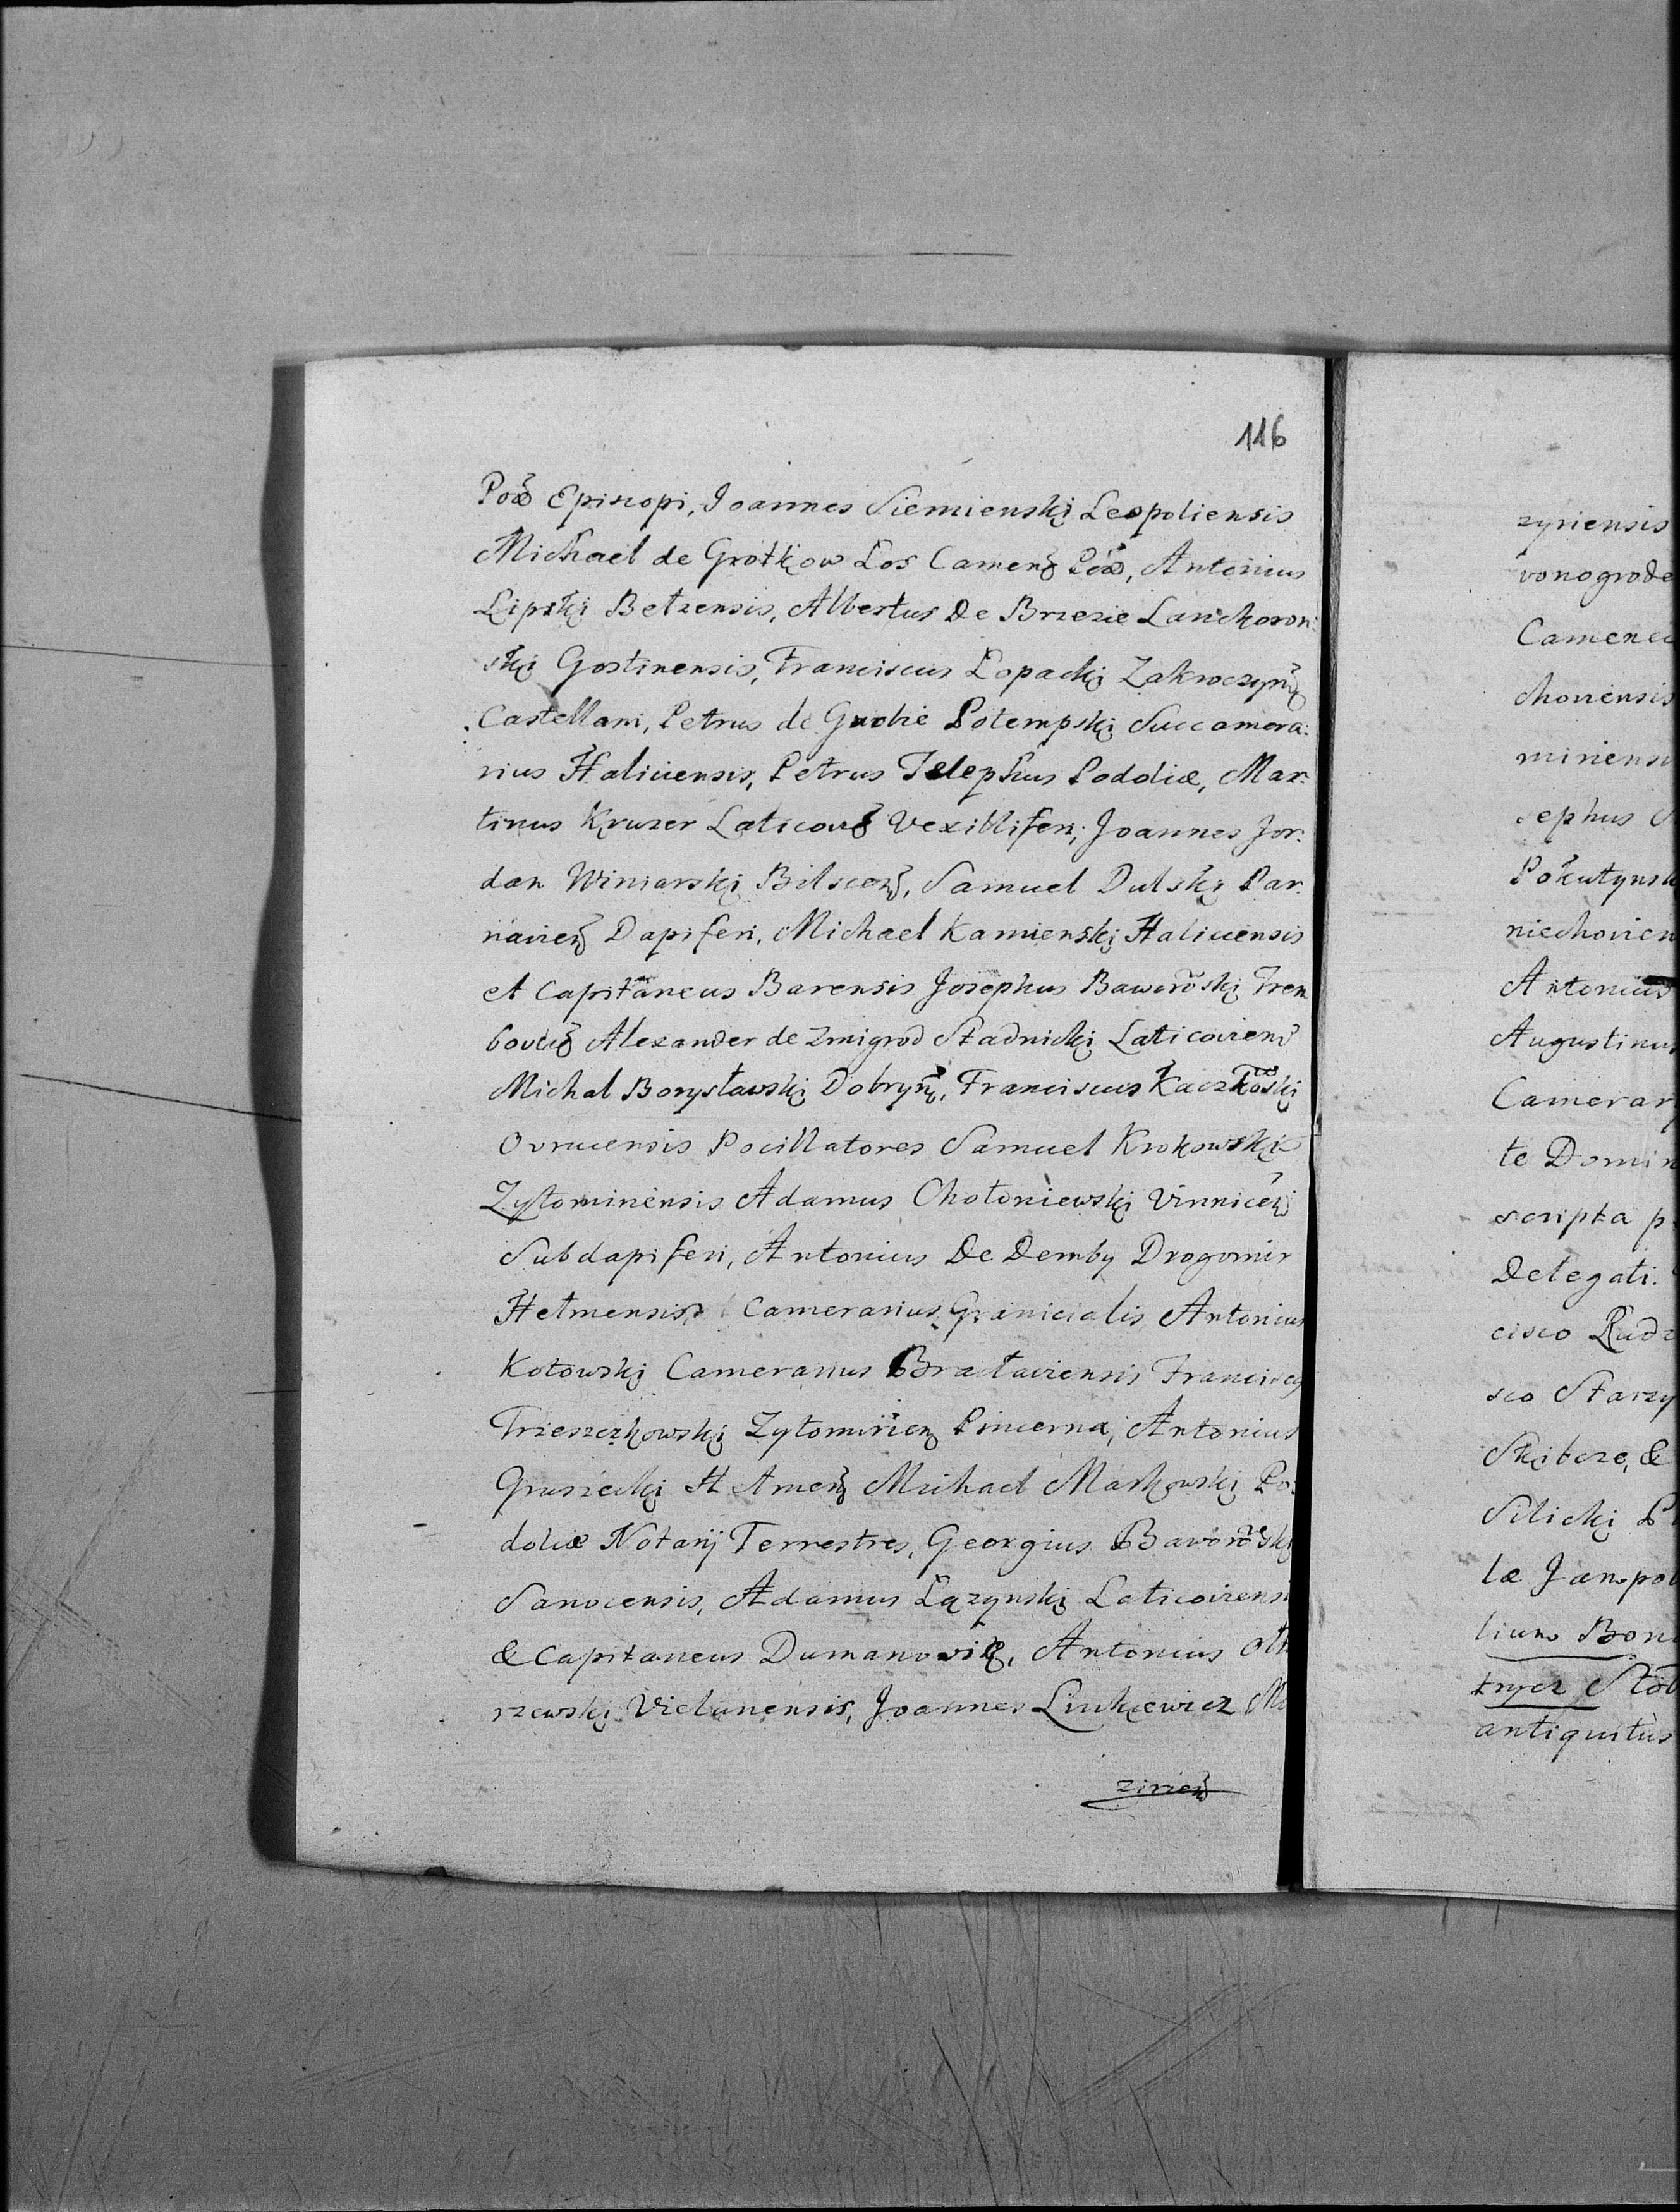 116
Episcopi, Joannes Siemienski Leopoliensis
Michael de Grotkow Los Camen, Antonius
Lipski Betzensis, Albertus De Brzezie Lanckoron:
ski Gostinensis, Franciscus Lopacki Zakroczyn
Castellani, Petrus de Potempski Succamera:
rius Haliciensis, Petrus Telephus Podoliæ, Mar:
tinus Kruzer Laticov Vexilliferi, Joannes Jor:
dan Winiarski Bilscen, Samuel Dulski Par:
navien Dapiferi, Michael Kamienski Haliciensis
et Capitaneus Barensis Josephus Baworõski Trem
bovlẽ Alexander de Zmigrod Stadnicki Laticovien
Michal Borysławski Dobryn, Franciscus Kaczkõski
Ovrucensis Pocillatores Samuel Krokowski
Zytominensis Adamus Chołoniewski Vinnicen
Subdapiferi, Antonius De Demby Drogomir
Hełmensis Camerarius Granicialis Antonius
Kotowski Camerarius Bracłaviensis Francisc
Trzeszczkowski Zytomirien Pincerna, Antonius
Grusiecki Hełmen Michael Markowski Po:
doliæ Notarij Terrestres, Georgius Baworõski
Sanocensis, Adamus Łązynski Laticoviensi
& Capitaneus Dumanovi, Antonius
rzewski Vielunensis, Joannes Linkiewicz M
zirien
zyriensis
vonogrode
Camenec
choviensis
miriensi
sephus
Pokutynsk
niechovien
Antonius
Augustinus
Camerar
te Domin
scripta p
Delegati.
cisco Rudz
sco Starzy
Skibcze, &
Silicki P
læ Jampol
lium Bon
trycz Stob
antiquitùs